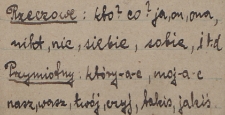 Rzeczowe: kto? co? ja, on, ona,
nikt, nic, siebie, sobie, itd
Przymiotny: który-a-e, mój-a-e
nasz, wasz, twój, czyj, takiś, jakiś.